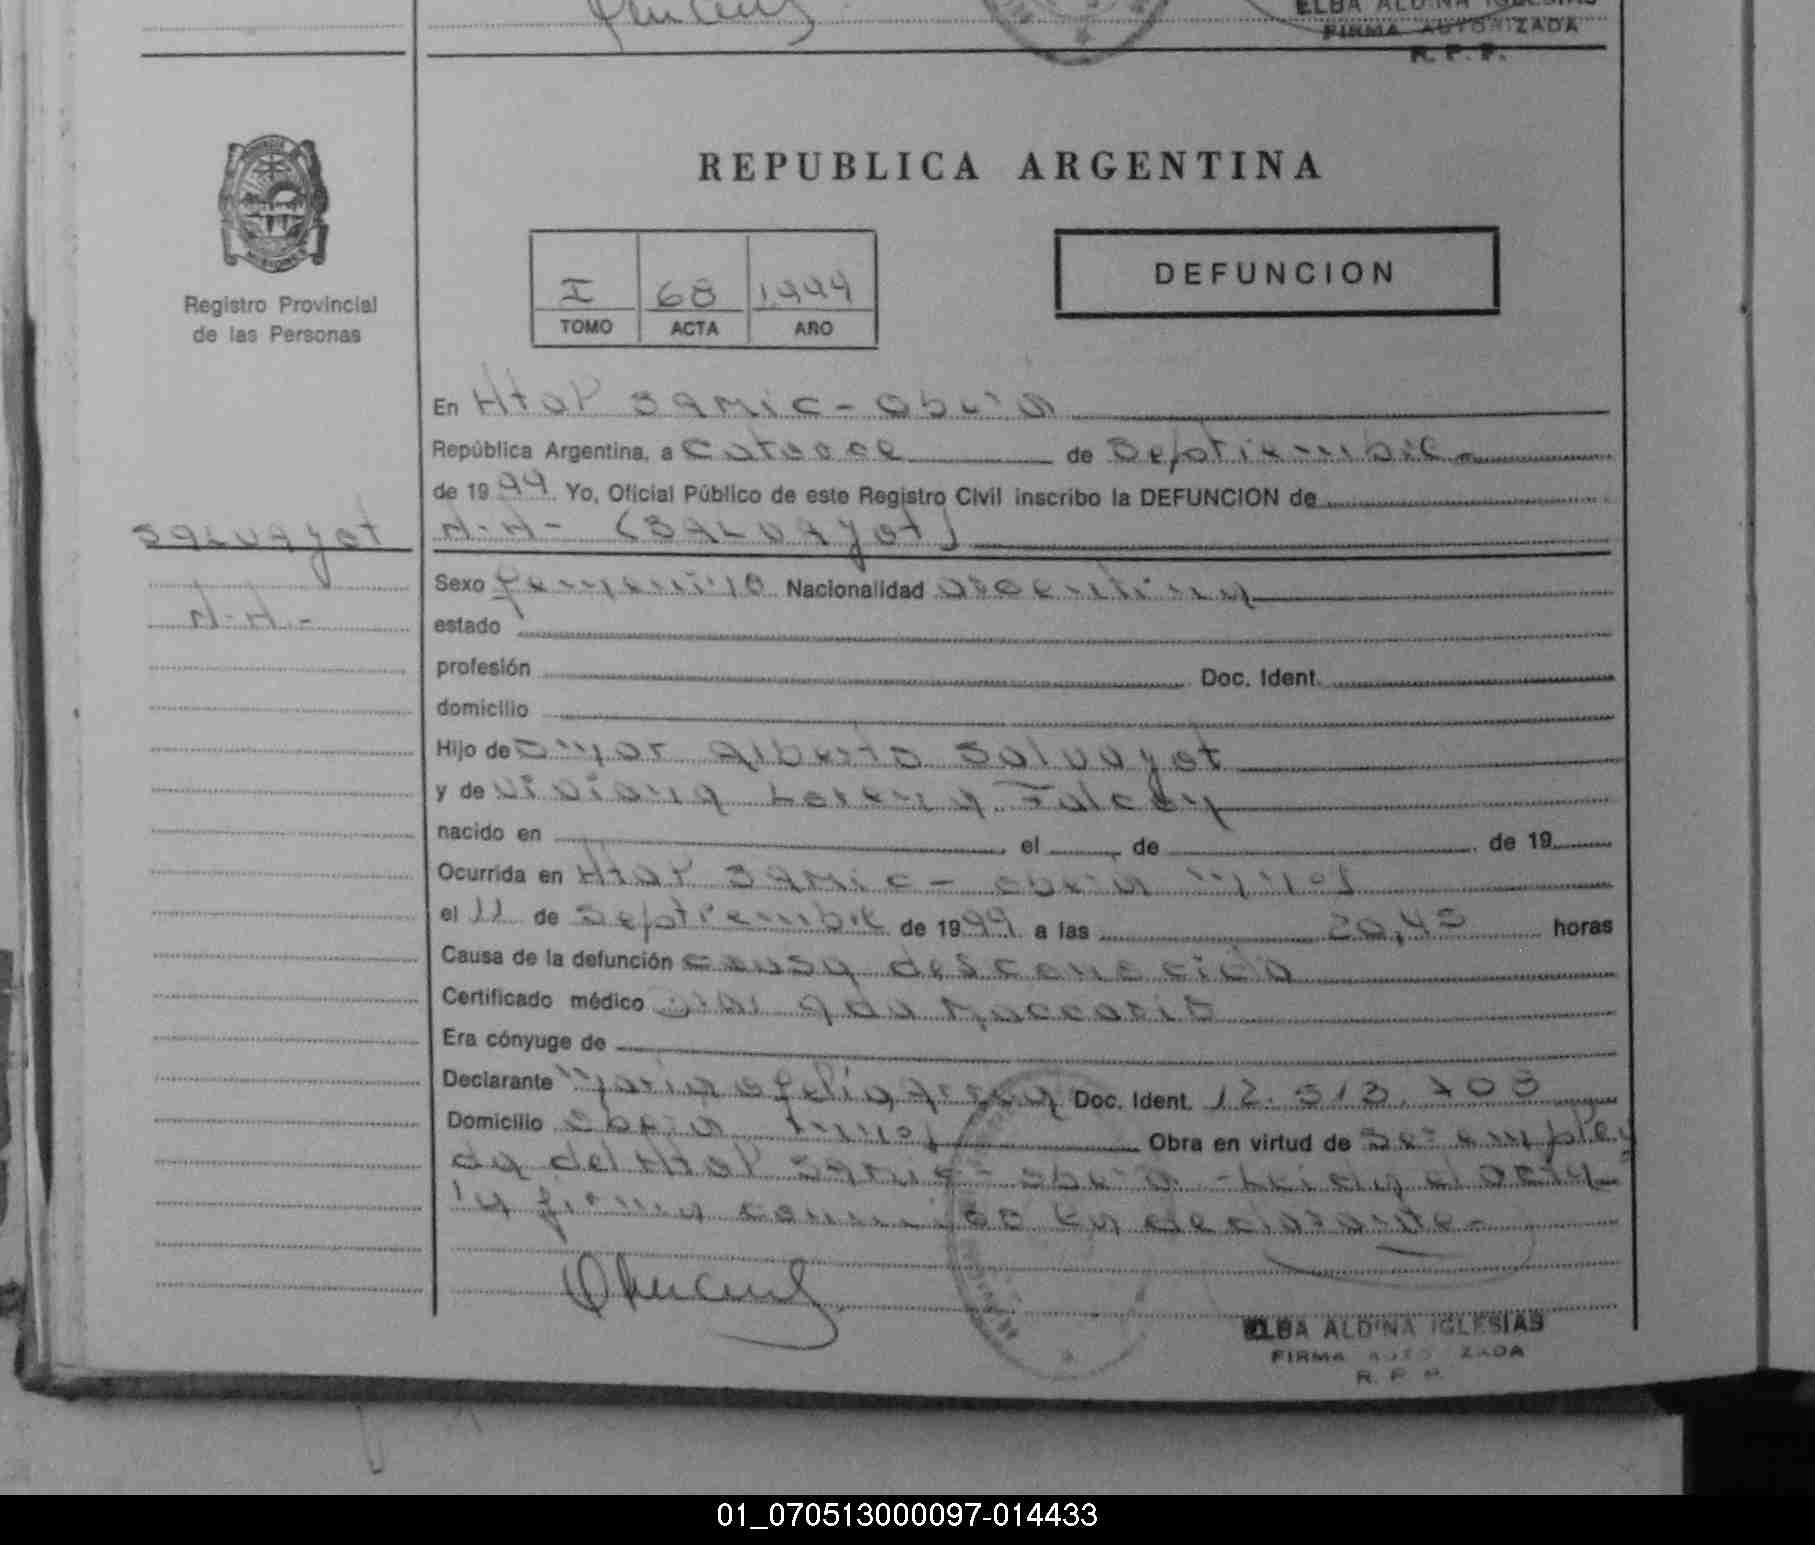 ELBA ALDINA IGLESIAS
FIRMA AUTORIZADA
R. P. P.
Registro Provincial
de las Personas
REPUBLICA ARGENTINA
I 68 1999
TOMO ACTA AÑO
DEFUNCION
En Htal SAMIC - Oberá
República Argentina, a Catorce de Septiembre
de 1999 Yo, Oficial Público de este Registro Civil inscribo la DEFUNCION de
SALVAyot
N.N- (SALVAyot)
Sexo femenino Nacionalidad argentina
N.N.-
estado
profesión Doc. Ident.
domicilio
Hijo de Omar Alberto Salvayot
y de Viviana Lorena Falcoy
nacido en el de de 19
Ocurrida en Htal SAMIC - Oberá Mnes
el 11 de Septiembre de 1999 a las 20,45 horas
Causa de la defunción causa desconocida
Certificado médico Ada
Era cónyuge de
Declarante Maria Ofelia Doc. Ident. 12.313.703
Domicilio Oberá Mnes Obra en virtud de Ser emplea
da del Htal SAMIC - Oberá - Leida el acta
la firma conmigo la declarante-
ELBA ALDINA IGLESIAS
FIRMA AUTORIZADA
R. P. P.
01_070513000097-014433